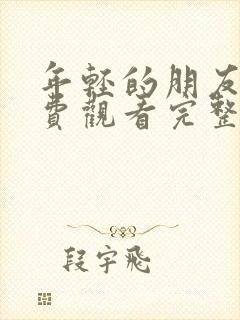 年輕的朋友
費觀看完整
段宇飛